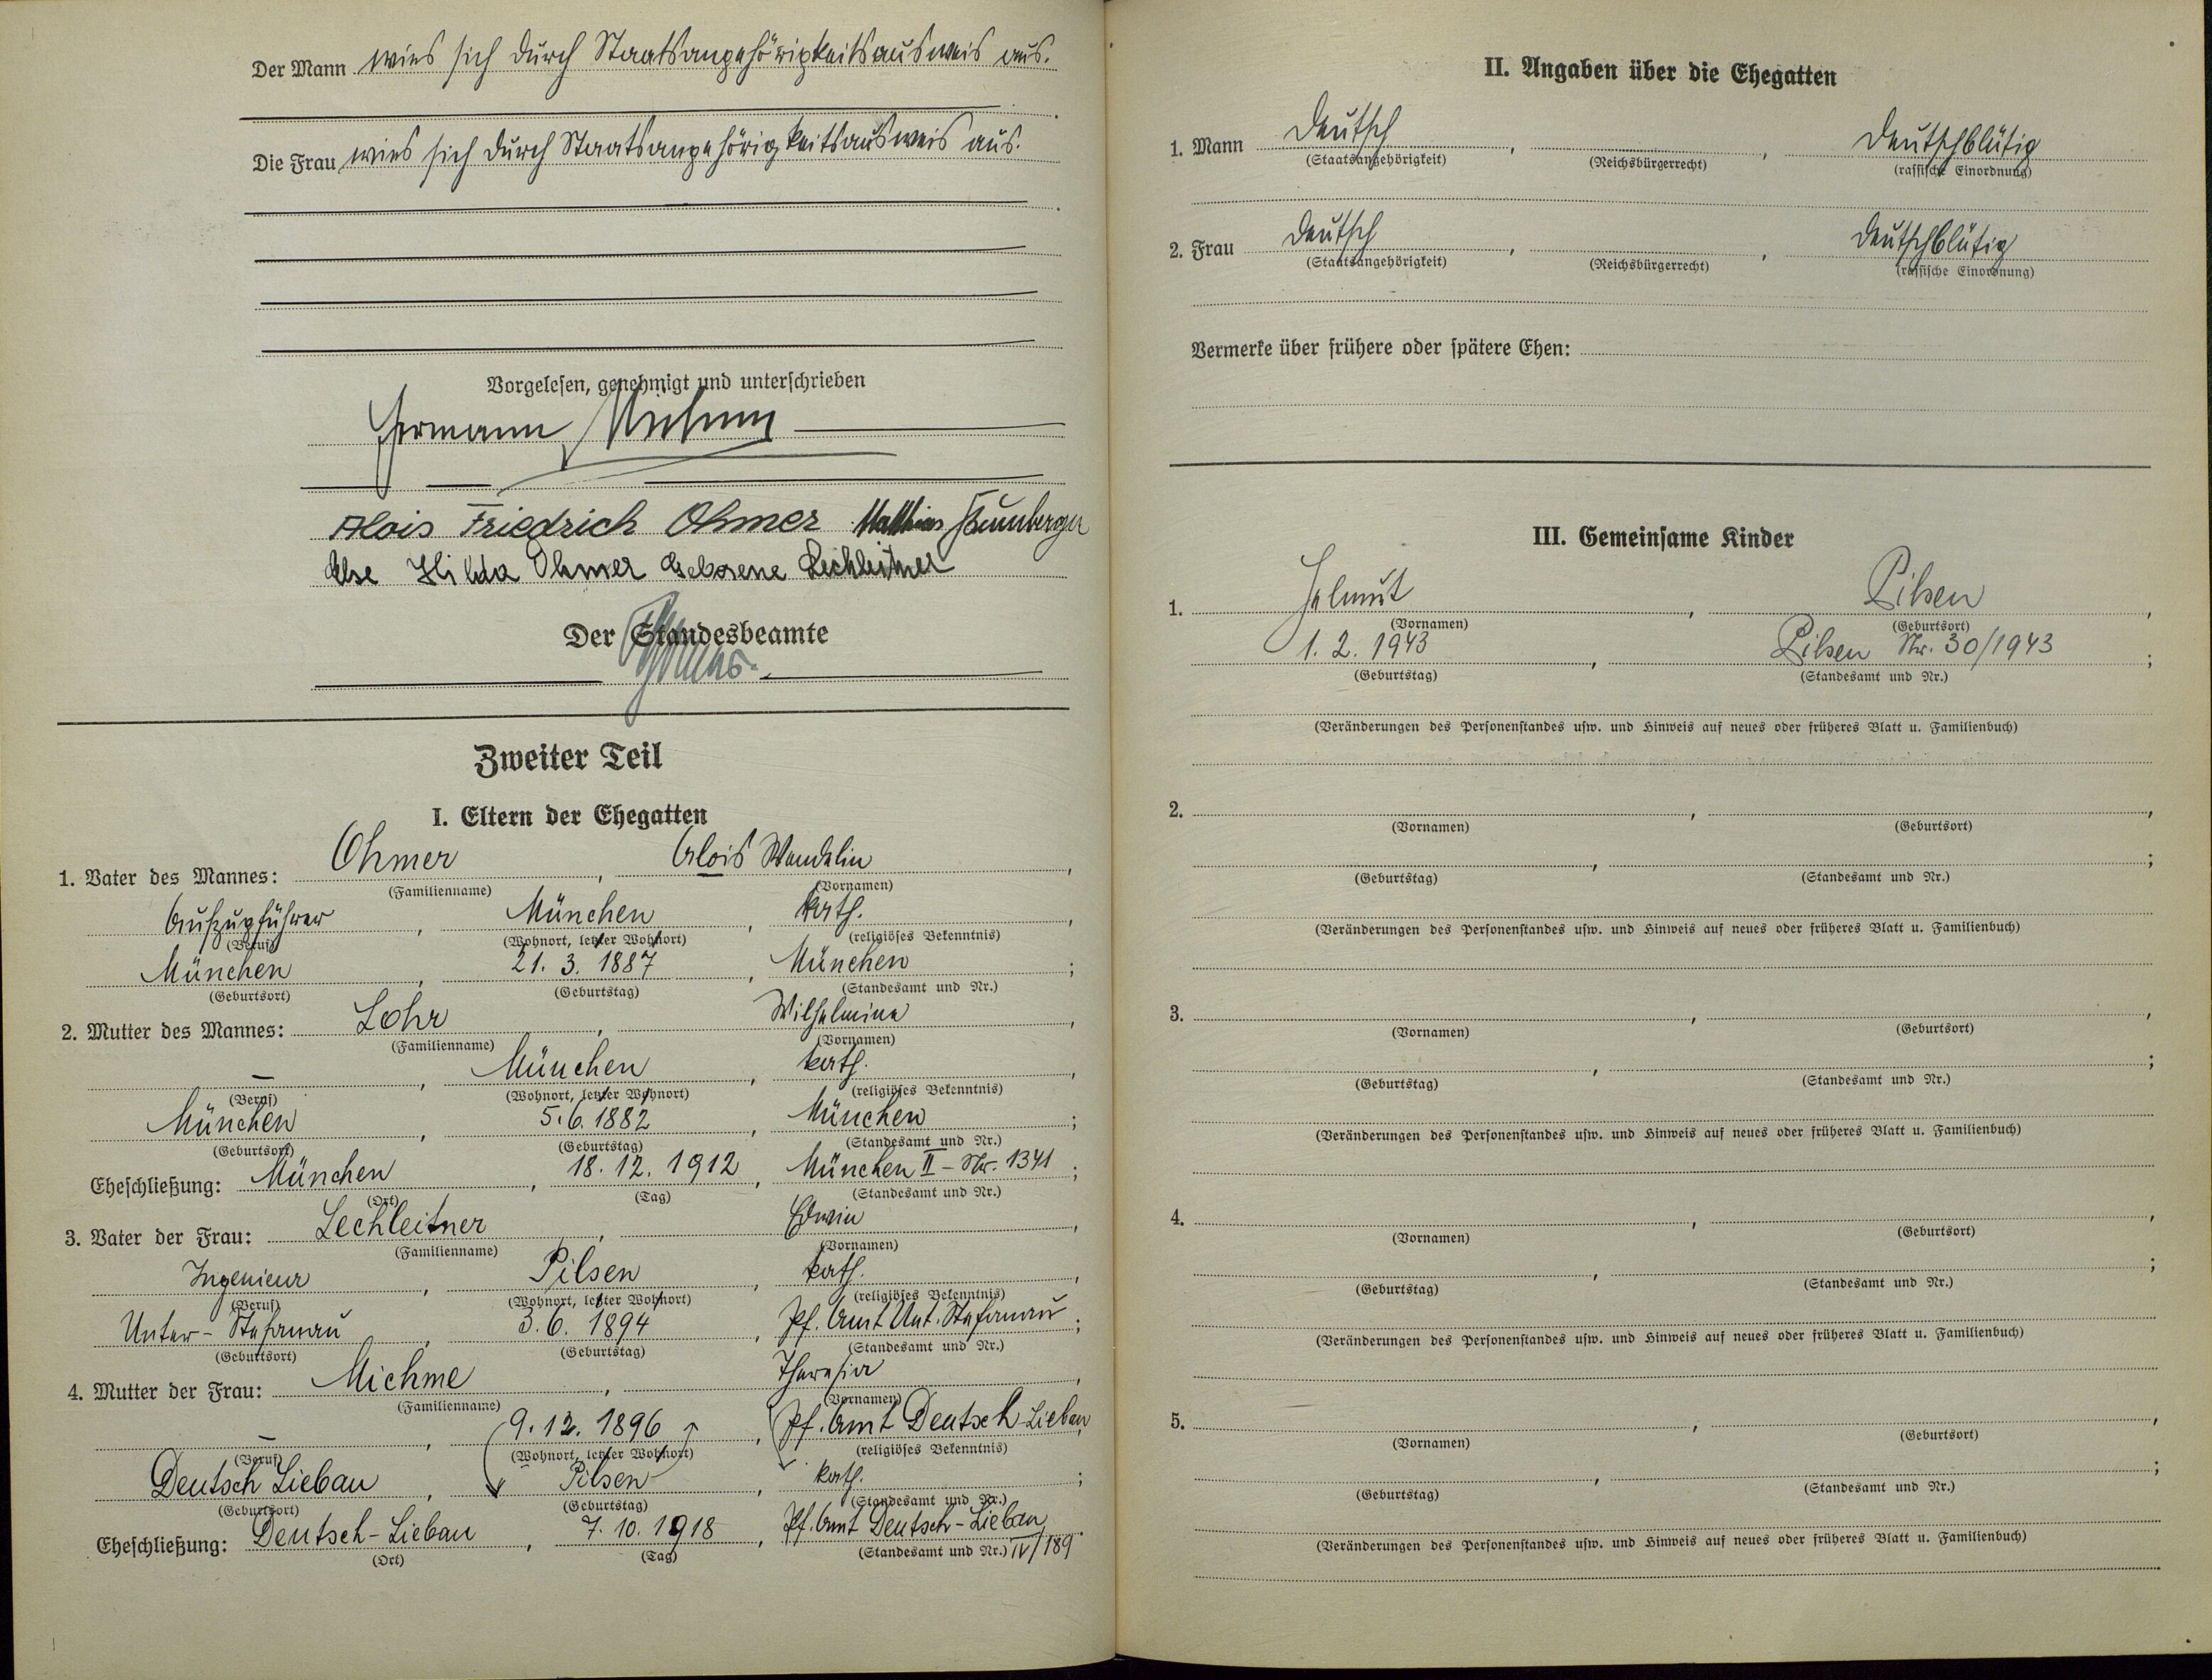 Der Mann wies sich durch Staatsangehörigkeitsausweis aus.
Die Frau wies sich durch Staatsangehörigkeitsausweis aus.
Vorgelesen, genehmigt und unterschrieben
Hermann
Alois Friedrich Ohmer Matthias
Else Hilda Ohmer geborene Lechleitner
Der Standesbeamte
Zweiter Teil
I. Eltern der Ehegatten
1. Vater des Mannes: Ohmer, Alois Wendelin,
(Familienname) (Vornamen)
Aufzugführer, München, kath.,
(Beruf) (Wohnort, letzter Wohnort) (religiöses Bekenntnis)
München, 21. 3. 1887, München;
(Geburtsort) (Geburtstag) (Standesamt und Nr.)
2. Mutter des Mannes: Lohr, Wilhelmine,
(Familienname) (Vornamen)
—, München, kath.,
(Beruf) (Wohnort, letzter Wohnort) (religiöses Bekenntnis)
München, 5. 6. 1882, München;
(Geburtsort) (Geburtstag) (Standesamt und Nr.)
Eheschließung: München, 18. 12. 1912, München II - Nr. 1341;
(Ort) (Tag) (Standesamt und Nr.)
3. Vater der Frau: Lechleitner, Edwin,
(Familienname) (Vornamen)
Ingenieur, Pilsen, kath.,
(Beruf) (Wohnort, letzter Wohnort) (religiöses Bekenntnis)
Unter-Stefanau, 3. 6. 1894, Pf. Amt Unt. Stefanau;
(Geburtsort) (Geburtstag) (Standesamt und Nr.)
4. Mutter der Frau: Michme, Theresia,
(Familienname) (Vornamen)
—, 9. 12. 1896, Pf. Amt Deutsch-Liebau,
(Beruf) (Wohnort, letzter Wohnort) (religiöses Bekenntnis)
Deutsch Liebau, Pilsen, kath.;
(Geburtsort) (Geburtstag) (Standesamt und Nr.)
Eheschließung: Deutsch-Liebau, 7. 10. 1918, Pf. Amt Deutsch-Liebau
(Ort) (Tag) (Standesamt und Nr.) IV/189
II. Angaben über die Ehegatten
1. Mann Deutsch, , Deutschblütig
(Staatsangehörigkeit) (Reichsbürgerrecht) (rassische Einordnung)
2. Frau Deutsch, , Deutschblütig
(Staatsangehörigkeit) (Reichsbürgerrecht) (rassische Einordnung)
Vermerke über frühere oder spätere Ehen:
III. Gemeinsame Kinder
1. Helmut, Pilsen,
(Vornamen) (Geburtsort)
1. 2. 1943, Pilsen Nr. 30/1943;
(Geburtstag) (Standesamt und Nr.)
(Veränderungen des Personenstandes usw. und Hinweis auf neues oder früheres Blatt u. Familienbuch)
2. , ,
(Vornamen) (Geburtsort)
, ;
(Geburtstag) (Standesamt und Nr.)
(Veränderungen des Personenstandes usw. und Hinweis auf neues oder früheres Blatt u. Familienbuch)
3. , ,
(Vornamen) (Geburtsort)
, ;
(Geburtstag) (Standesamt und Nr.)
(Veränderungen des Personenstandes usw. und Hinweis auf neues oder früheres Blatt u. Familienbuch)
4. , ,
(Vornamen) (Geburtsort)
, ;
(Geburtstag) (Standesamt und Nr.)
(Veränderungen des Personenstandes usw. und Hinweis auf neues oder früheres Blatt u. Familienbuch)
5. , ,
(Vornamen) (Geburtsort)
, ;
(Geburtstag) (Standesamt und Nr.)
(Veränderungen des Personenstandes usw. und Hinweis auf neues oder früheres Blatt u. Familienbuch)